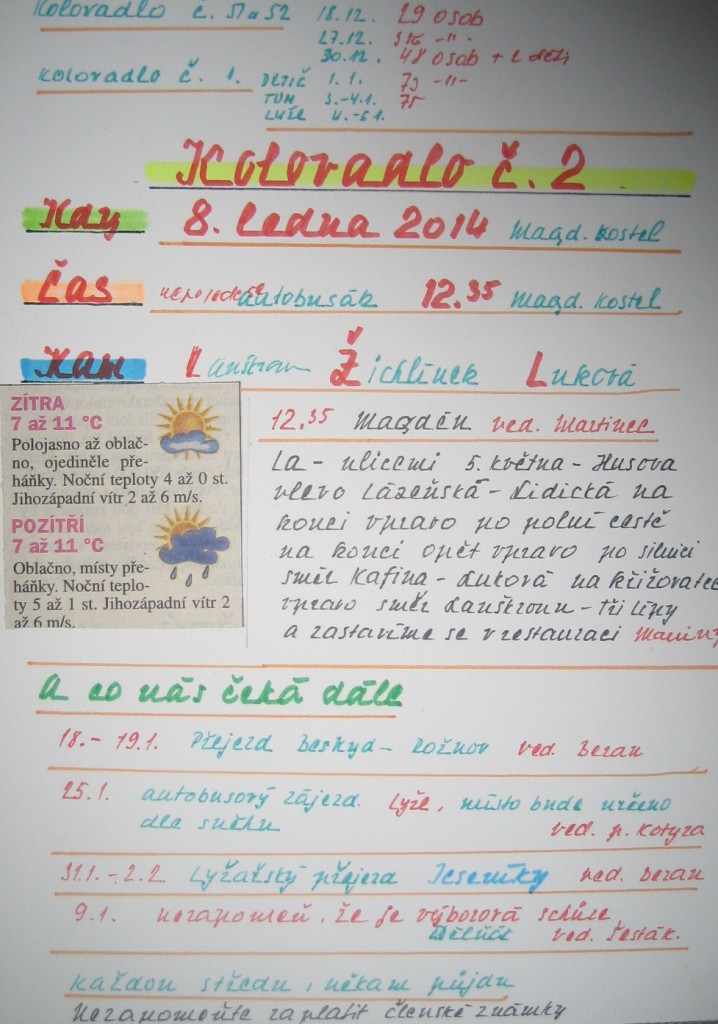 Koloradlo č. 51 a 52 18.12. 29 osob
27.12. 316 -"-
30.12. 48 osob + 2 děti
Koloradlo č. 1. 1.1. 73 -"-
TUM 3.-4.1. 75
4.-5.1.
Koloradlo č. 2
Kdy 8. ledna 2014 Magd. kostel
Čas autobusák 12.35 Magd. kostel
Kam Lanškroun Žichlínek Luková
ZÍTRA
7 až 11 °C
Polojasno až oblač-
no, ojediněle pře-
háňky. Noční teploty 4 až 0 st.
Jihozápadní vítr 2 až 6 m/s.
POZÍTŘÍ
7 až 11 °C
Oblačno, místy pře-
háňky. Noční teplo-
ty 5 až 1 st. Jihozápadní vítr 2
až 6 m/s.
12.35 Magdén ved. Martinec
La - ulicemi 5. května - Husova
vlevo Lázeňská - Lidická na
konci vpravo po polní cestě
na konci opět vpravo po silnici
směr Kafina - Luková na křižovatce
vpravo směr Lanškroun - Tři lípy
a zastavíme se v restauraci
A co nás čeká dále
18.- 19.1. Přejezd Beskyd - Rožnov ved. Beran
25.1. autobusový zájezd. Lyže, místo bude určeno
dle sněhu ved. p. Kotyza
31.1. - 2.2. Lyžařský přejezd Jeseníky ved. Beran
9.1. nezapomeň, že je výborová schůze
Dělňák ved. Šesták.
každou středu, někam půjdu
Nezapomeňte zaplatit členské známky